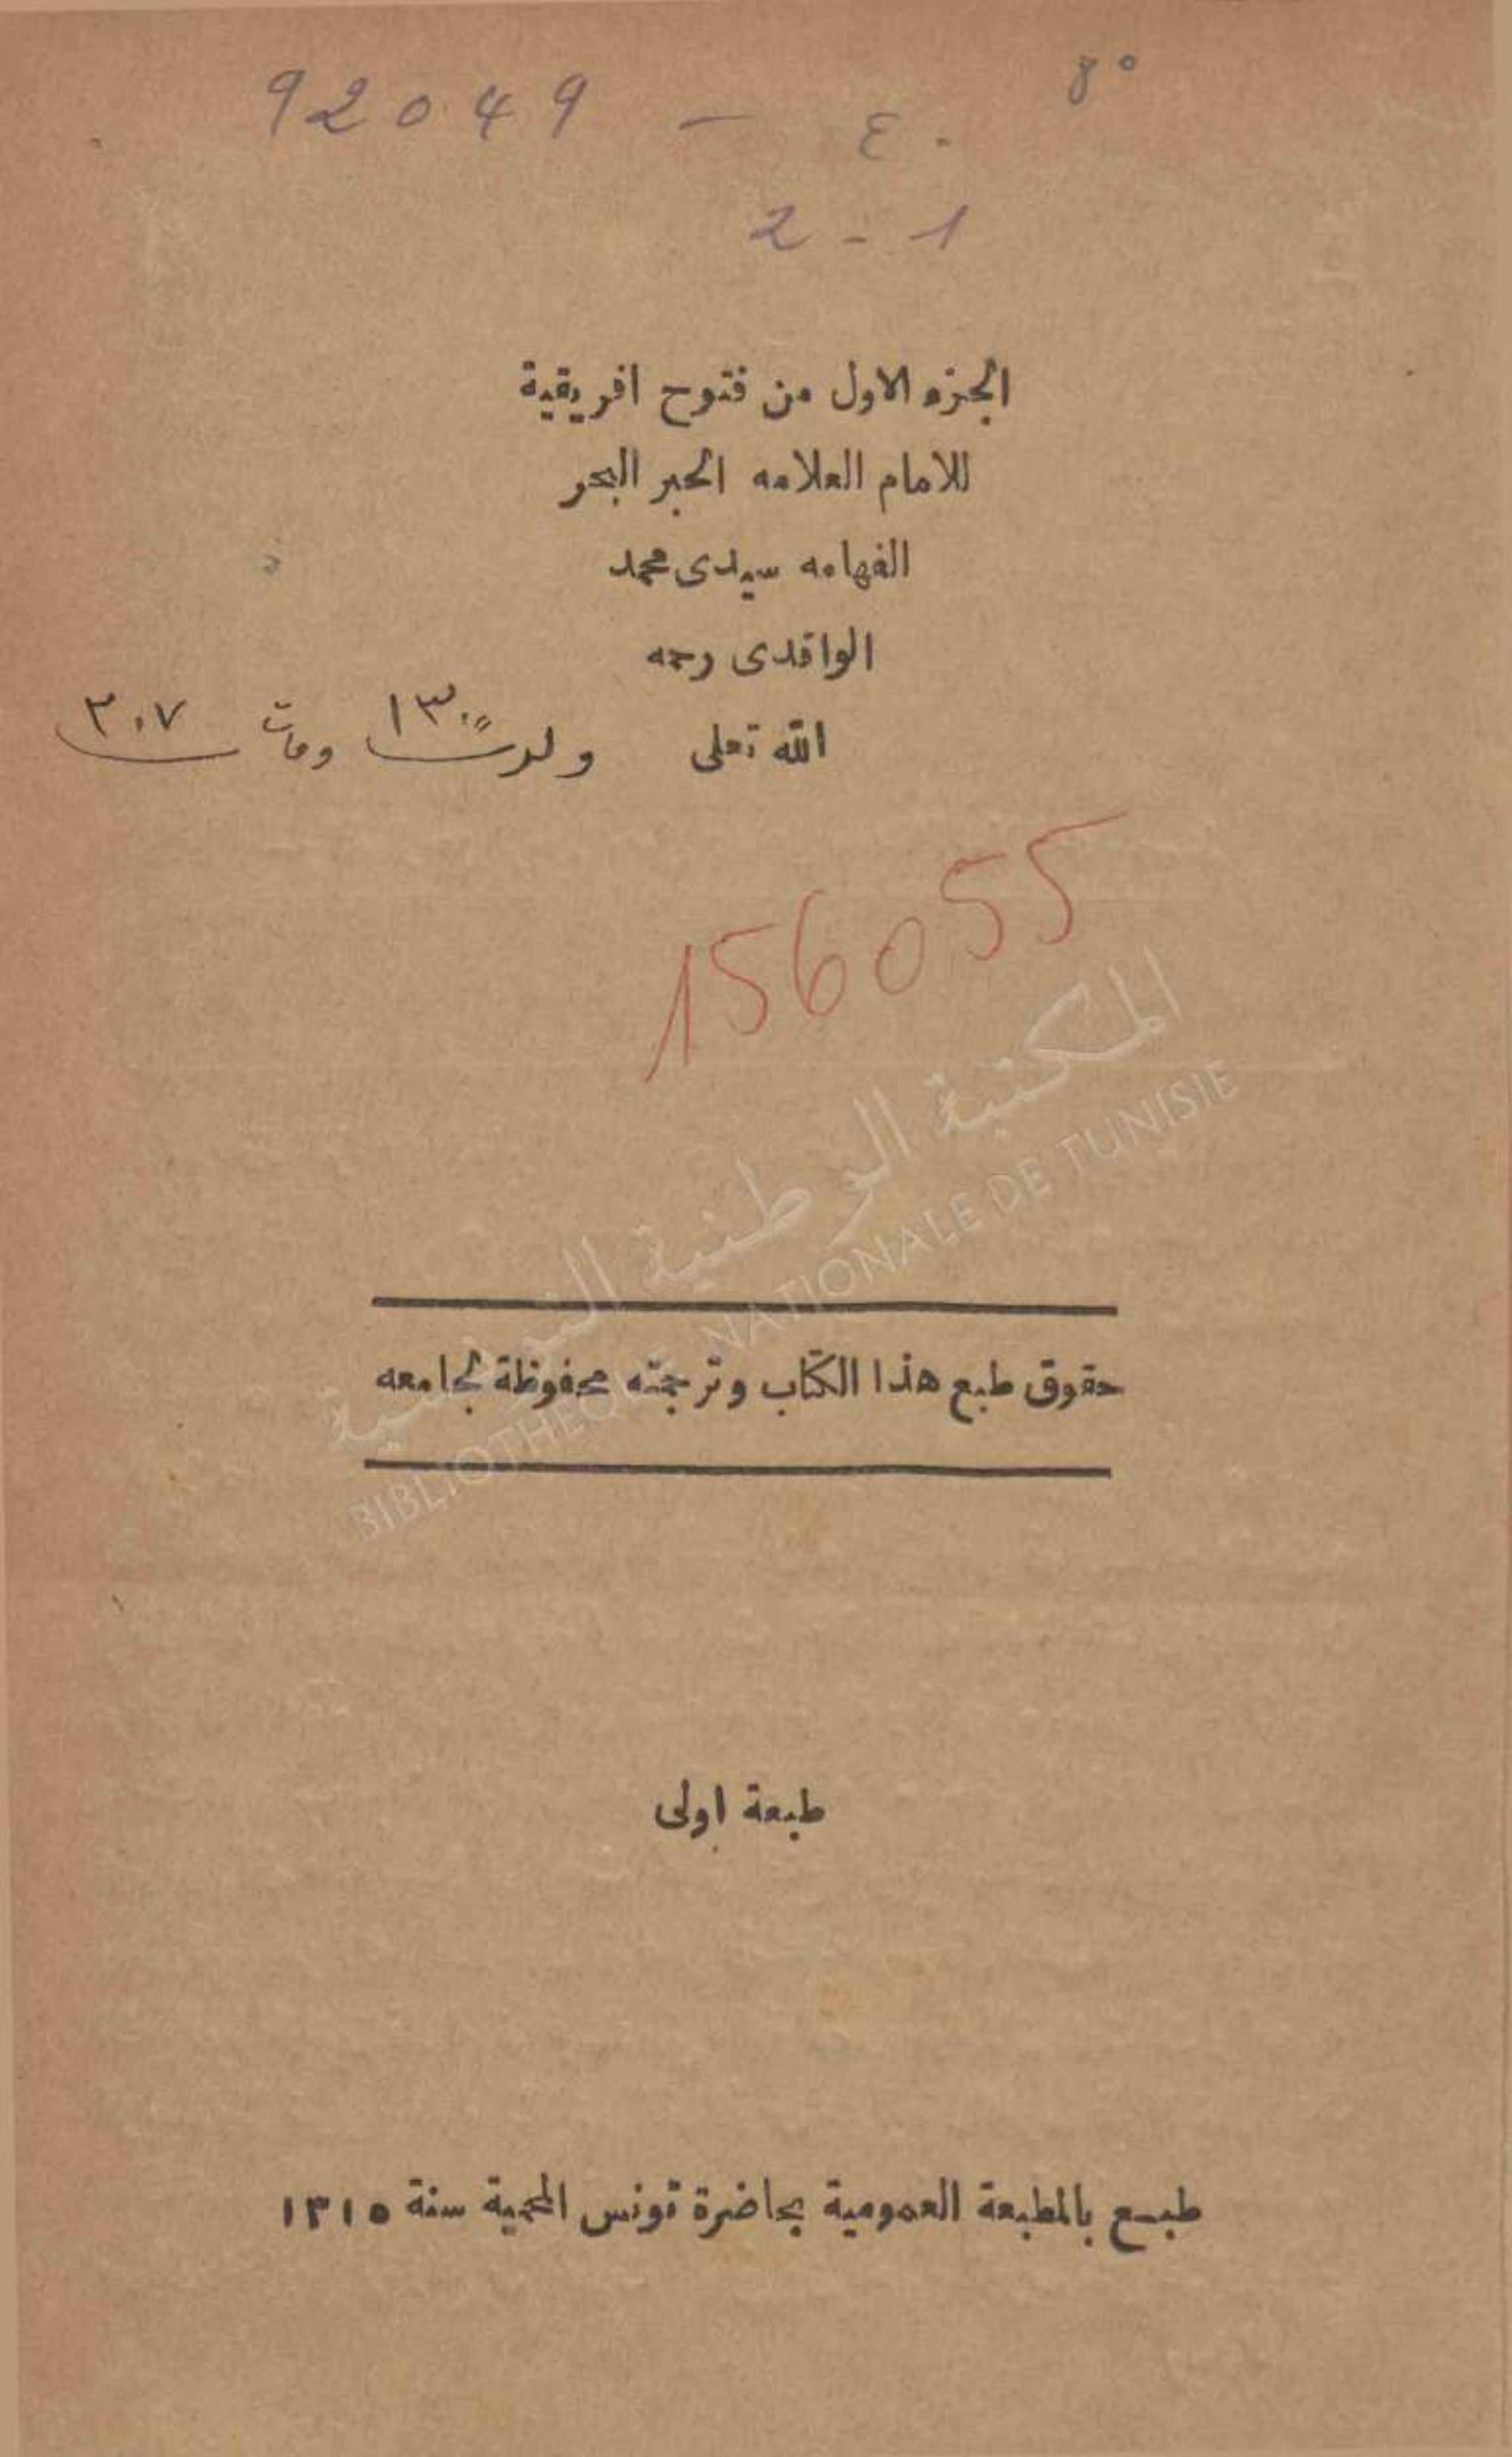 8°
92049 - ع.
2 - 1
الجزء الاول من فتوح افريقية
للامام العلامه الحبر البحر
الفهامه سيدى محمد
الواقدى رحمه
الله تعلى ولد سنة ١٣٠ ومات سنة ٢٠٧
156055
المكتبة الوطنية التونسية
BIBLIOTHEQUE NATIONALE DE TUNISIE
حقوق طبع هذا الكتاب وترجمته محفوظة لجامعه
طبعة اولى
طبع بالمطبعة العمومية بحاضرة تونس المحمية سنة ١٣١٥